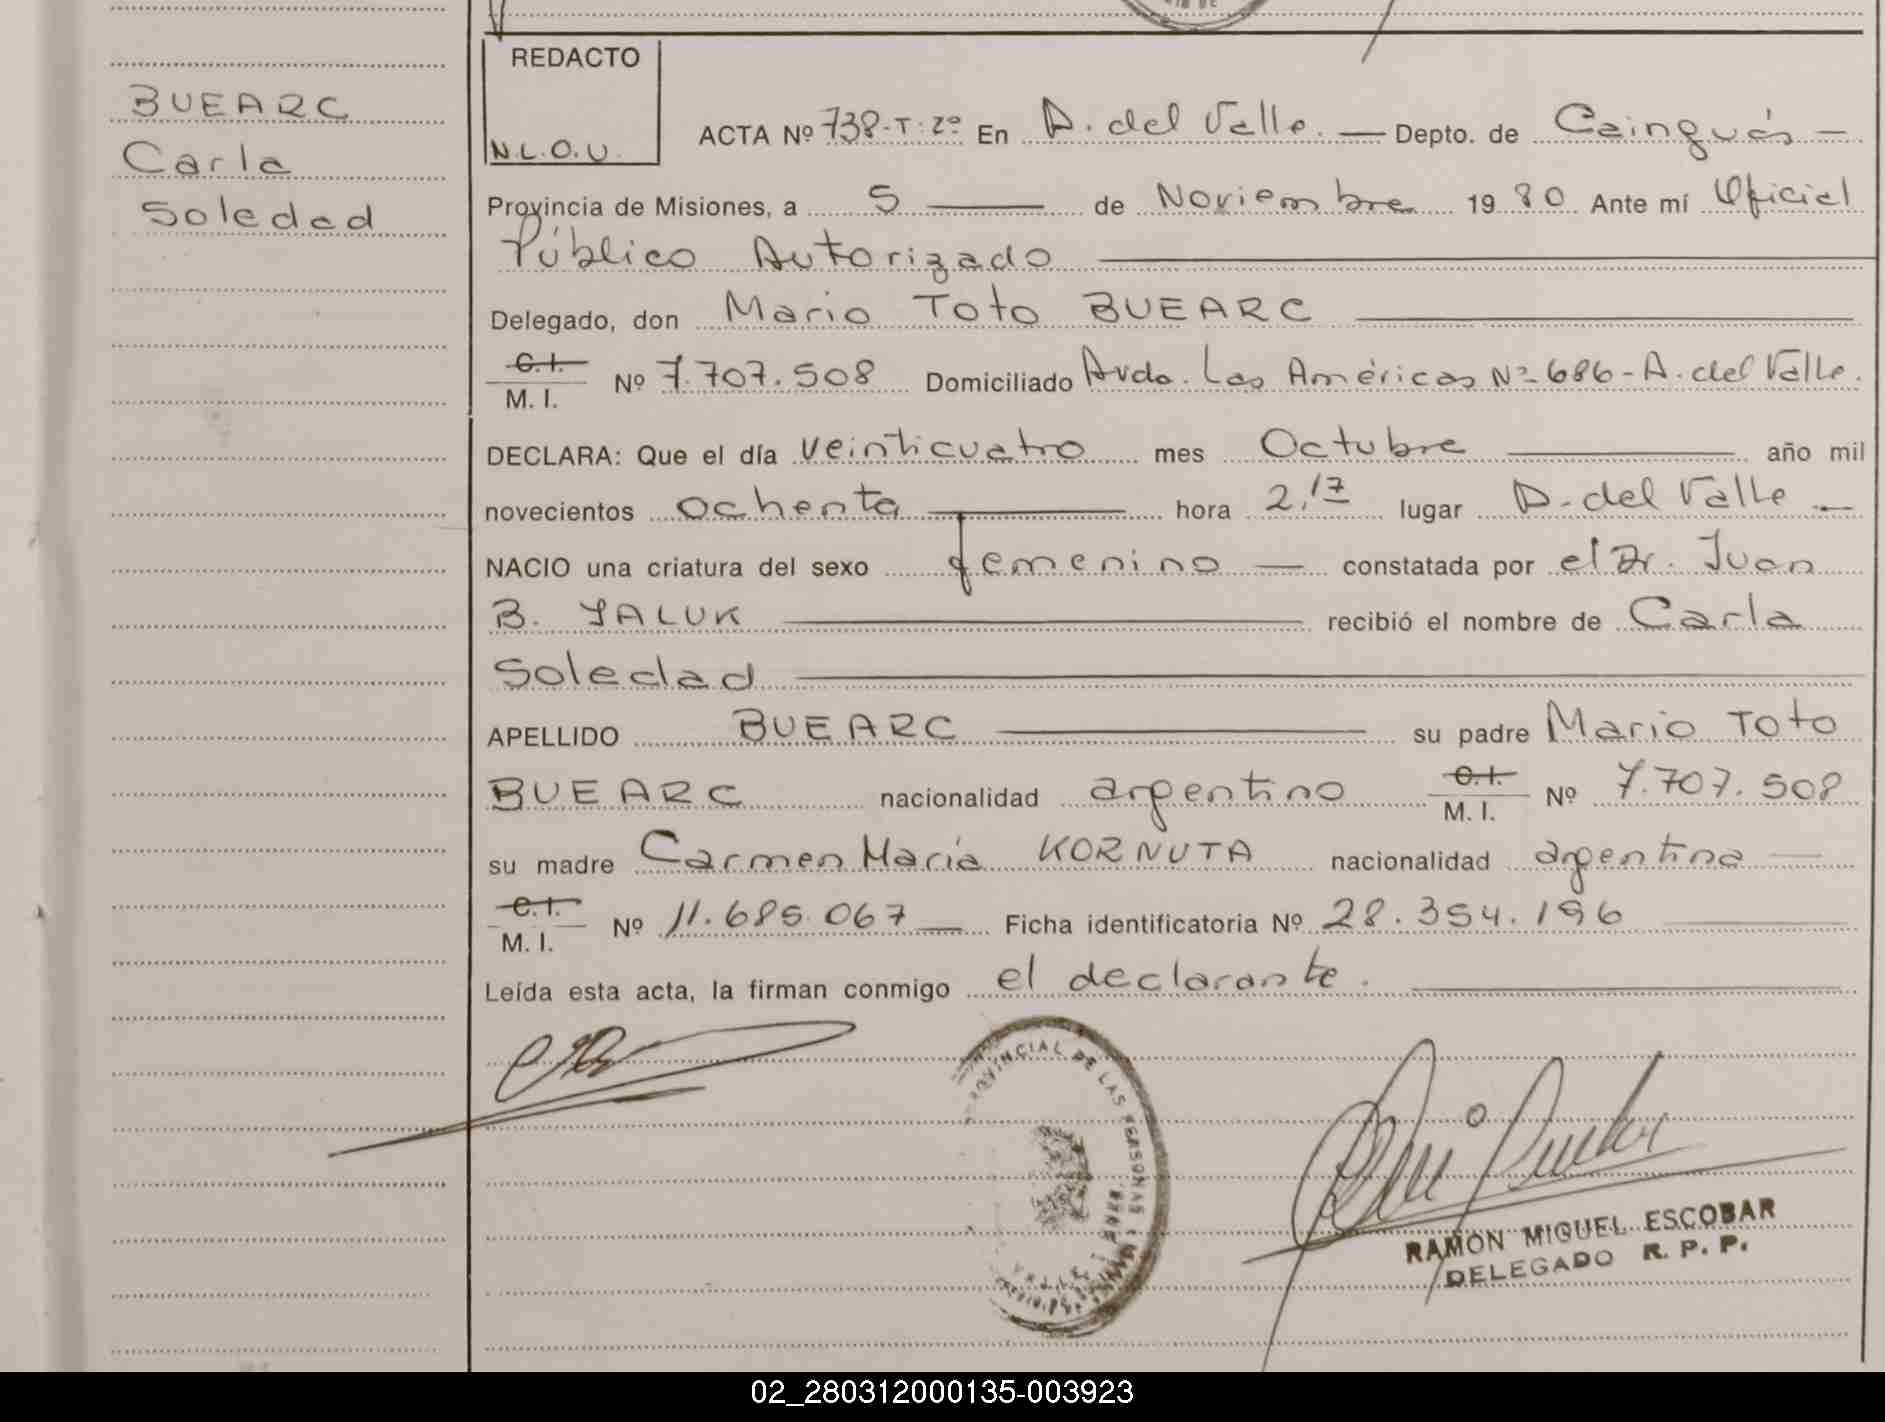 BUEARC
Carla
Soledad
REDACTO
N.L.O.U.
ACTA Nº 738-T:2º En A. del Valle. — Depto. de Cainguás —
Provincia de Misiones, a 5 — de Noviembre 1980 Ante mí Oficial
Público Autorizado
Delegado, don Mario Toto BUEARC
C.I. M. I. Nº 7.707.508 Domiciliado Avda. Las Américas Nº 686 - A. del Valle.
DECLARA: Que el día veinticuatro mes Octubre — año mil
novecientos ochenta — hora 2,17 lugar A. del Valle —
NACIO una criatura del sexo femenino — constatada por el Dr. Juan
B. YALUK — recibió el nombre de Carla
Soledad
APELLIDO BUEARC — su padre Mario Toto
BUEARC nacionalidad argentino C.I. M. I. Nº 7.707.508
su madre Carmen María KORNUTA nacionalidad argentina —
C.I. M. I. Nº 11.685.067 — Ficha identificatoria Nº 28.354.196
Leída esta acta, la firman conmigo el declarante.
PROVINCIAL DE LAS PERSONAS
RAMON MIGUEL ESCOBAR
DELEGADO R. P. P.
02_280312000135-003923